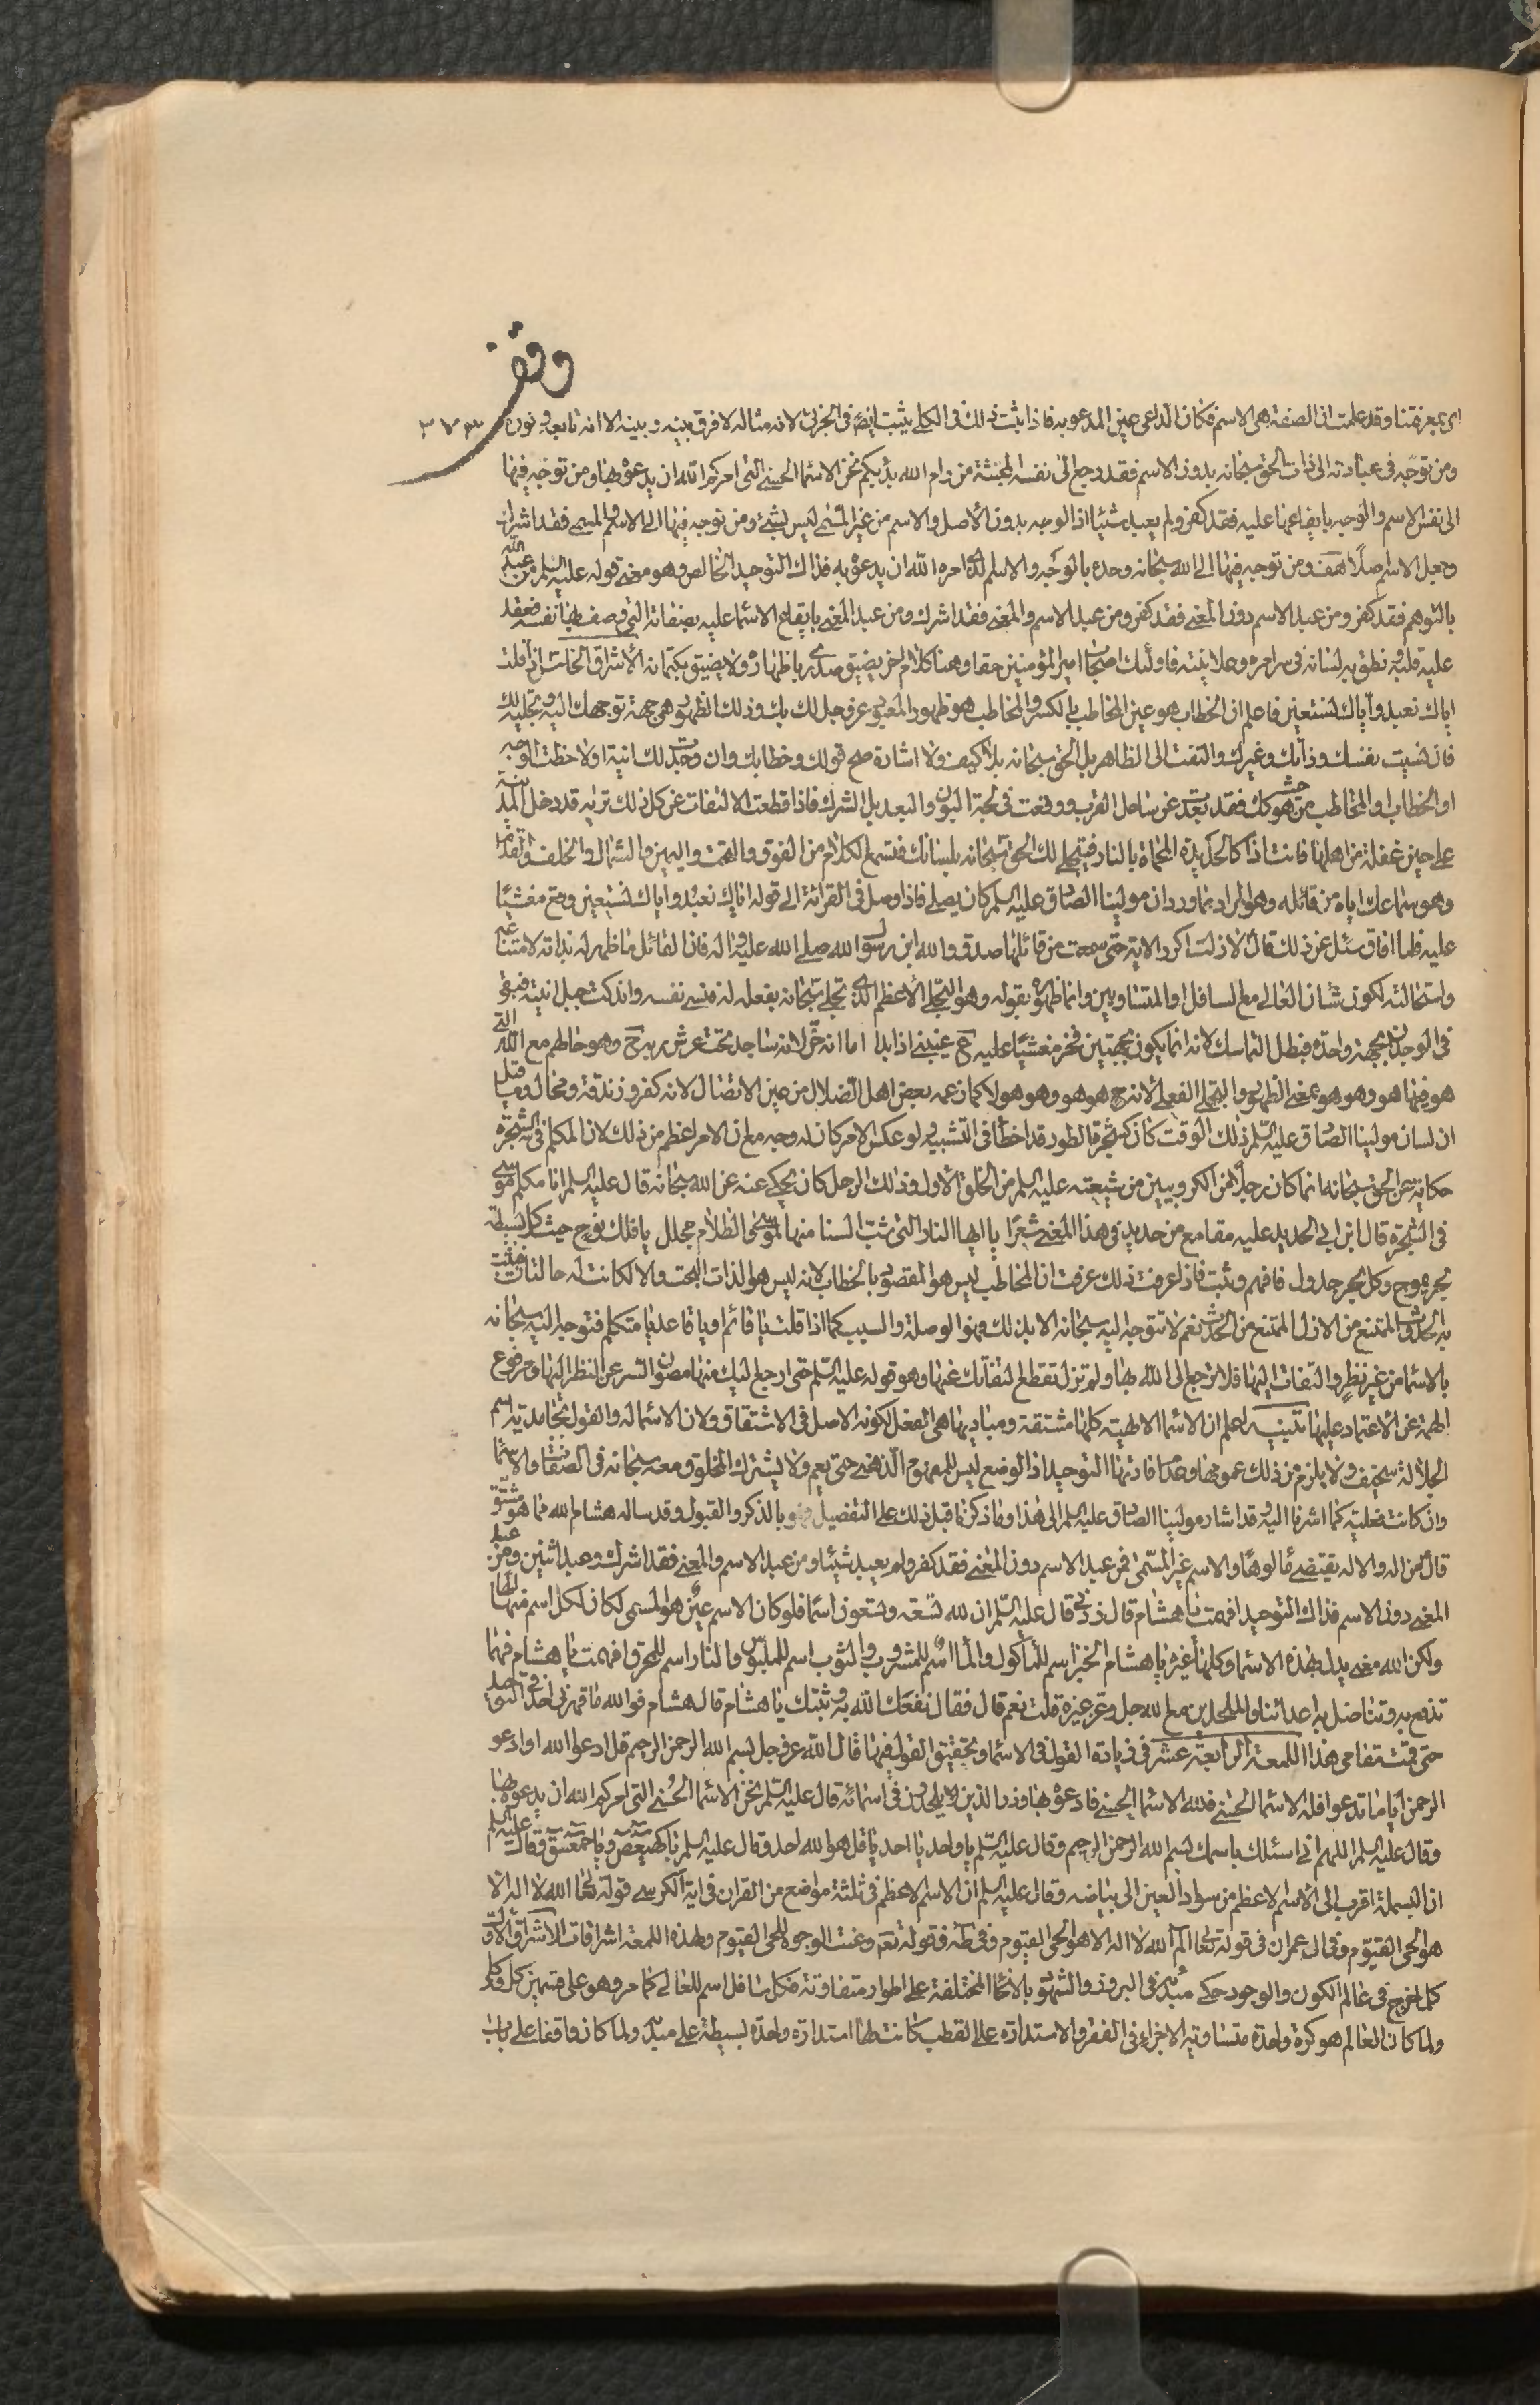 وقف
٢٧٣
اى بمعرفتنا وقد علمت ان الصفة هى الاسم فكان الداعى عين المدعو به فاذا ثبت ذلك فى الكلى يثبت ايضًا فى الجزئى لانه مثاله لا فرق بينه و بينه الا انه تابعه و نوره
ومن توجّه فى عبادته الى ذات الحق سبحانه بدون الاسم فقد رجع الى نفسه المجتثة من رام الله بذ بكم نحن الاسماء الحسنى التى امركم الله ان يدعوه بها ومن توجه فيها
الى نفس الاسم والوجه بايقاعها عليه فقد كفر ولم يعبد شيئا اذ الوجه بدون الاصل والاسم من غير المسمى ليس بشئ ومن توجه فيها الى الاسم والمسمى فقد اشرك
وجعل الاسم اصلًا هف ومن توجه فيها الى الله سبحانه وحده بالوجه والاسم الذى امره الله ان يدعوه به فذاك التوحيد الخالص وهو معنى قوله عليه السلم من عبد الله
بالتوهم فقد كفر ومن عبد الاسم دون المعنى فقد كفر ومن عبد الاسم والمعنى فقد اشرك ومن عبد المعنى بايقاع الاسماء عليه بصفاته التى وصف بها نفسه فعقد
عليه قلبه و نطق به لسانه فى سرائره وعلانيته فاولئك اصحاب امير المؤمنين حقا وهنا كلام اخر يضيق صدرى باظهاره ولا يضيق بكتمانه الاشراق الخامس اذا قلت
اياك نعبد واياك نستعين فاعلم ان الخطاب هو عين المخاطب بالكسر والمخاطب هو ظهور المعبود عز وجل لك بك وذلك الظهور هى جهة توجهك اليه و تجليه لك
فان نسيت نفسك وذاتك وغيرك والتفت الى الظاهر بل الحق سبحانه بلا كيف ولا اشارة صح قولك وخطابك وان وجدت لك انية او لاحظت الوجه
او الخطاب او المخاطب من حيث هو كك فقد بعدت عن ساحل القرب ووقعت فى لجة البون والبعد بل الشرك فاذا قطعت الالتفات عن كل ذلك تريه قد دخل المدينة
على حين غفلة من اهلها فانت اذا كالحديدة المحماة بالنار فيتجلى لك الحق سبحانه بلسانك فتسمع الكلام من الفوق والتحت واليمين والشمال والخلف والقدام
وهو سماعك اياه من قائله وهو المراد بما ورد ان مولينا الصادق عليه السلم كان يصلى فاذا وصل فى القرائة الى قوله اياك نعبد واياك نستعين وقع مغشيًا
عليه فلما افاق سئل عن ذلك فقال لا زلت اكرر الاية حتى سمعت من قائلها صدق والله ابن رسول الله صلى الله عليه واله فان القائل ما ظهر له بذاته لامتناعه
واستحالته لكون شان العالى مع السافل او المتساويين وانما ظهوره بقوله وهو التجلى الاعظم الذى تجلى سبحانه بفعله له فنسى نفسه واندكت جبل انيته فبقى
فى الوجدان بجهة واحدة فبطل التماسك لانه انما يكون بجهتين فخر مغشيًا عليه ح عينى اذا بدا اما انه خر لانه ساجد تحت عرش ربه ح وهو حالهم مع الله التى
هو فيها هو وهو هو بمعنى الظهور والتجلى الفعلى لانه ح هو هو وهو هو لا كما زعمه بعض اهل الضلال من عين الاتصال لانه كفر وزندقة ومحال وما قيل
ان لسان مولينا الصادق عليه السلم ذلك الوقت كان كشجرة الطور قد اخطأ فى التشبيه و لو عكس الامر كان له وجه مع ان الامر اعظم من ذلك لان المكلم فى الشجرة
حكاية عن الحق سبحانه انما كان رجلًا من الكروبيين من شيعته عليه السلم من الخلق الاول وذلك الرجل كان يحكى عنه عن الله سبحانه قال عليه السلم انا مكلم موسى
فى الشجرة قال ابن ابى الحديد عليه مقامع من حديد فى هذا المعنى شعرًا يا ايها النار التى شب السنا منها لموسى والظلام مجلل يا فلك نوح حيث كل بسيطة
بحر يموج وكل بحر جدول فافهم وثبت فاذا عرفت ذلك عرفت ان المخاطب ليس هو المقصود بالخطاب لانه ليس هو الذات البحت والا لكانت له حالتان فيثبت
به الحدوث الممتنع من الازل الممتنع من الحدث نعم لا تتوجه اليه سبحانه الا بذلك وهو الوصلة والسبب كما اذا قلت يا قائم او يا قاعد يا متكلم فتوجه اليه سبحانه
بالاسماء من غير نظر والتفات اليها فلا ترجع الى الله بها ولم تزل تقطع التفاتك عنها وهو قوله عليه السلم حتى ارجع اليك منها مصون السر عن النظر اليها ومرفوع
الهمة عن الاعتماد عليها تنبيه اعلم ان الاسماء الالهية كلها مشتقة ومباديها هى الفعل لكونه الاصل فى الاشتقاق ولان الاسماء له والقول بجامدية اسم
الجلالة سخيف ولا يلزم من ذلك عمومها وعدم افادتها التوحيد اذ الوضع ليس للمفهوم الذهنى حتى يعم ولا يشترك المخلوق معه سبحانه فى الصفات والاسماء
وان كانت فعلية كما اشرنا اليه و قد اشار مولينا الصادق عليه السلم الى هذا وما ذكرنا قبل ذلك على التفصيل وهو بالذكر والقبول وقد ساله هشام الله مما هو مشتق
قال من اله والاله يقتضى مألوهًا والاسم غير المسمّى فمن عبد الاسم دون المعنى فقد كفر ولم يعبد شيئا ومن عبد الاسم والمعنى فقد اشرك وعبد اثنين ومن عبد
المعنى دون الاسم فذاك التوحيد افهمت يا هشام قال زدنى قال عليه السلم ان لله تسعة وتسعون اسما فلو كان الاسم عين هو المسمى لكان لكل اسم منها الها
ولكن الله معنى يدل بهذه الاسماء وكلها غيره يا هشام الخبز اسم للمأكول والماء اسم للمشروب والثوب اسم للملبوس والنار اسم للمحرق افهمت يا هشام فهما
تدفع به وتناضل به اعدائنا والملحدين مع الله جل وعز غيره قلت نعم قال فقال نفعك الله به و ثبتك يا هشام قال هشام فوالله ما قهرنى احد فى التوحيد
حتى قمت مقامى هذا اللمعة الرابعة عشر فى زيادة القول فى الاسماء وتحقيق القول فيها قال الله عز وجل بسم الله الرحمن الرحيم قل ادعوا الله او ادعو
الرحمن ايا ما تدعوا فله الاسماء الحسنى فلله الاسماء الحسنى فادعوه بها وذر الذين يلحدون فى اسمائه قال عليه السلم نحن الاسماء الحسنى التى امركم الله ان يدعوه بها
وقال عليه السلم اللهم انى اسئلك باسمك بسم الله الرحمن الرحيم وقال عليه السلم يا واحد يا احد يا قل هو الله احد وقال عليه السلم يا كهيعص ويا حمعسق وقال عليه السلم
ان البسملة اقرب الى الاسم الاعظم من سواد العين الى بياضه وقال عليه السلم ان الاسم الاعظم فى ثلثة مواضع من القران فى اية الكرسى قوله تعالى الله لا اله الا
هو الحى القيوم وفى ال عمران فى قوله تعالى الم الله لا اله الا هو الحى القيوم وفى طه فى قوله تعم وعنت الوجوه للحى القيوم ولهذه اللمعة اشراقات الاشراق الاول
كلما خرج فى عالم الكون والوجود حكى مبدئه فى البروز والشهود بالانحاء المختلفة على اطوار متفاوتة فكل سافل اسم للعالى كما مر وهو على قسمين كلى وكلى
ولما كان العالم هو كرة واحدة متساوية الاجزاء فى الفقر والاستدارة على القطب كانت لها استدارة واحدة بسيطة على مبدئه ولما كان واقفا على باب